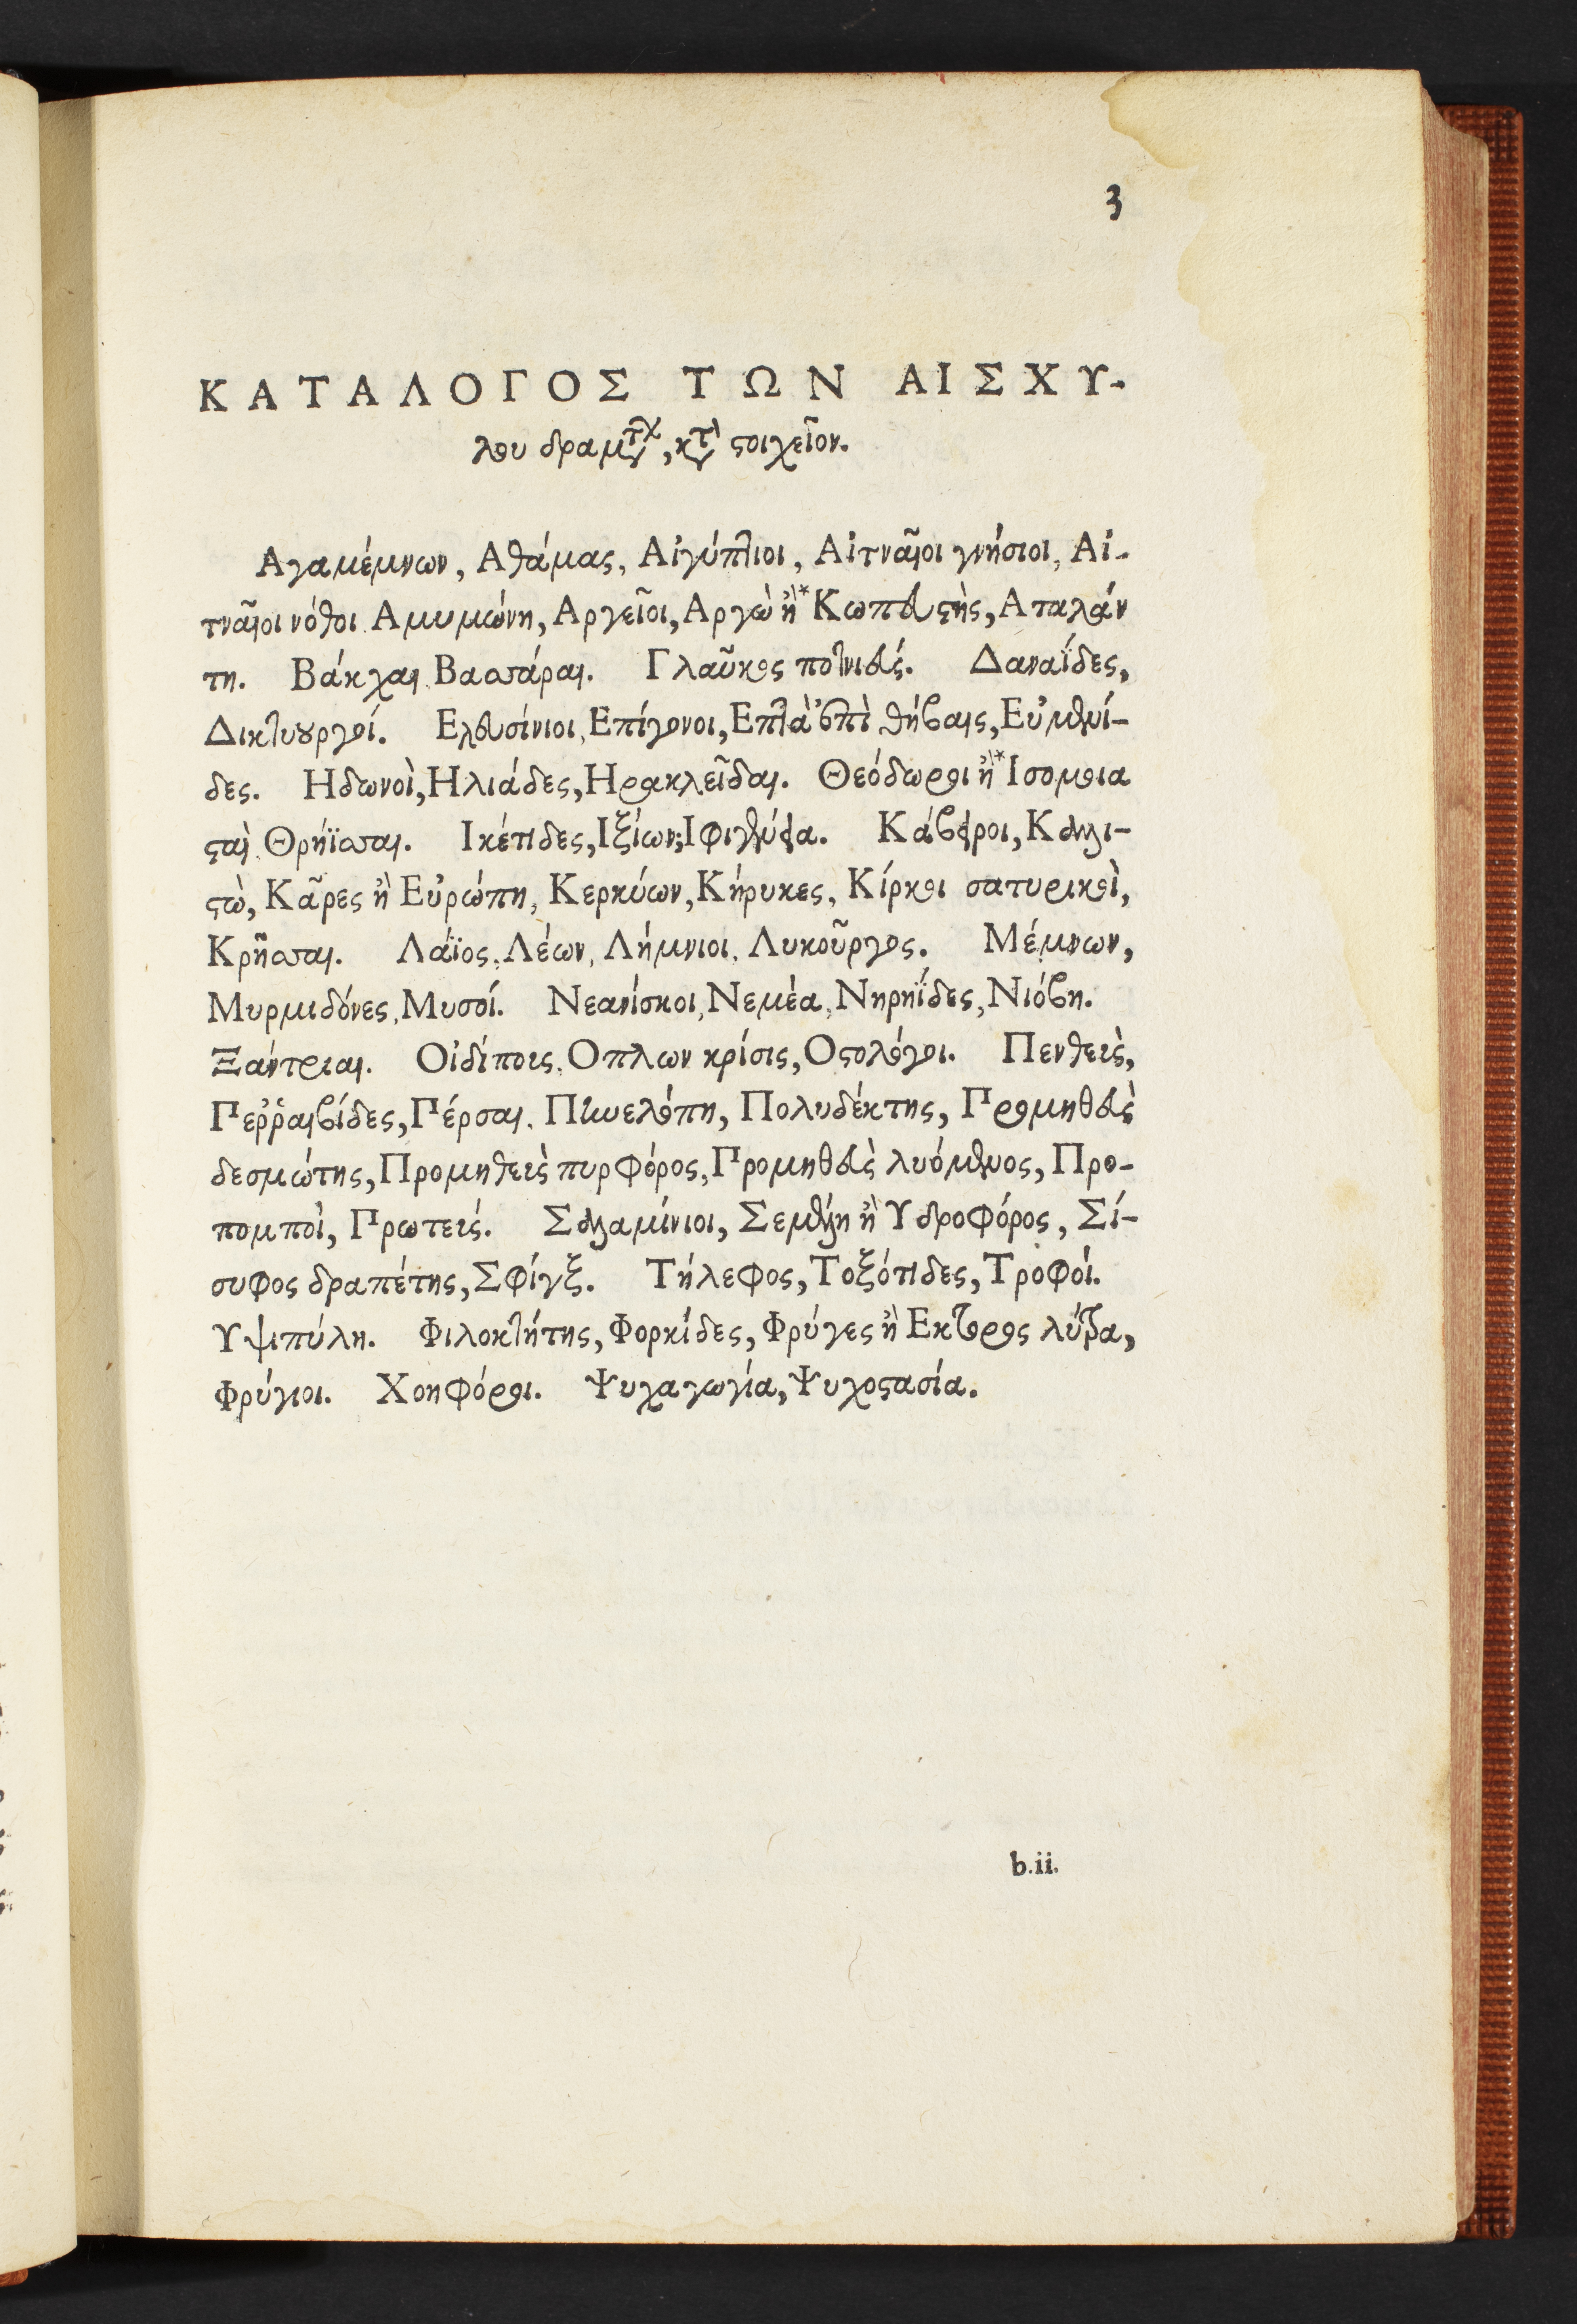 3
ΚΑΤΑΛΟΓΟΣ ΤΩΝ ΑΙΣΧΥ-
λου δραμτχ, κτ ϛοιχεῖον.
Αγαμέμνων, Αθάμας, Αἰγύπτιοι, Αἰτναῖοι γνήσιοι, Αἰ-
τναῖοι νόθοι. Αμυμώνη, Αργεῖοι, Αργὼ ἢ* Κωπευϛὴς, Αταλάν
τη. Βάκχαι, Βασσάραι. Γλαῦκος ποτνιεύς. Δαναΐδες,
Δικτυουργοί. Ελευσίνιοι, Επίγονοι, Επτὰ ἐπὶ θήβαις, Εὐμενί-
δες. Ηδωνοὶ, Ηλιάδες, Ηρακλεῖδαι. Θεόδωροι ἢ* Ισομοια
ϛαὶ Θρήϊσσαι. Ικέτιδες, Ιξίων, Ιφιγένεια. Κάβειροι, Καλλι-
ϛὼ, Κᾶρες ἢ Εὐρώπη, Κερκύων, Κήρυκες, Κίρκοι σατυρικοὶ,
Κρῆσσαι. Λάϊος, Λέων, Λήμνιοι, Λυκοῦργος. Μέμνων,
Μυρμιδόνες, Μυσοί. Νεανίσκοι, Νεμέα, Νηρηΐδες, Νιόβη.
Ξάντριαι. Οἰδίπους, Οπλων κρίσις, Οϛολόγοι. Πενθεὺς,
Περῤῥαιβίδες, Πέρσαι, Πηνελόπη, Πολυδέκτης, Προμηθεὺς
δεσμώτης, Προμηθεὺς πυρφόρος, Προμηθεὺς λυόμενος, Προ-
πομποὶ, Πρωτεύς. Σαλαμίνιοι, Σεμέλη ἢ Υδροφόρος, Σί-
συφος δραπέτης, Σφίγξ. Τήλεφος, Τοξότιδες, Τροφοί.
Υψιπύλη. Φιλοκτήτης, Φορκίδες, Φρύγες ἢ Εκτορος λύτρα,
Φρύγιοι. Χοηφόροι. Ψυχαγωγία, Ψυχοϛασία.
b.ii.